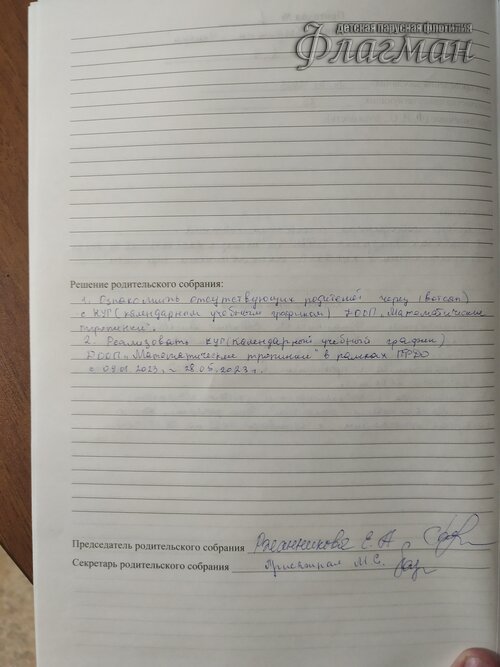 детская парусная флотилия
Флагман
Решение родительского собрания:
1. Ознакомить отсутствующих родителей через (ватсап)
с КУГ (календарным учебным графиком) ДООП „Математические
тропинки".
2. Реализовать КУГ (календарный учебный график)
ДООП „Математические тропинки" в рамках ПФДО
с 09.01.2023 г. 28.05.2023 г.
Председатель родительского собрания Е. А
Секретарь родительского собрания М. С.